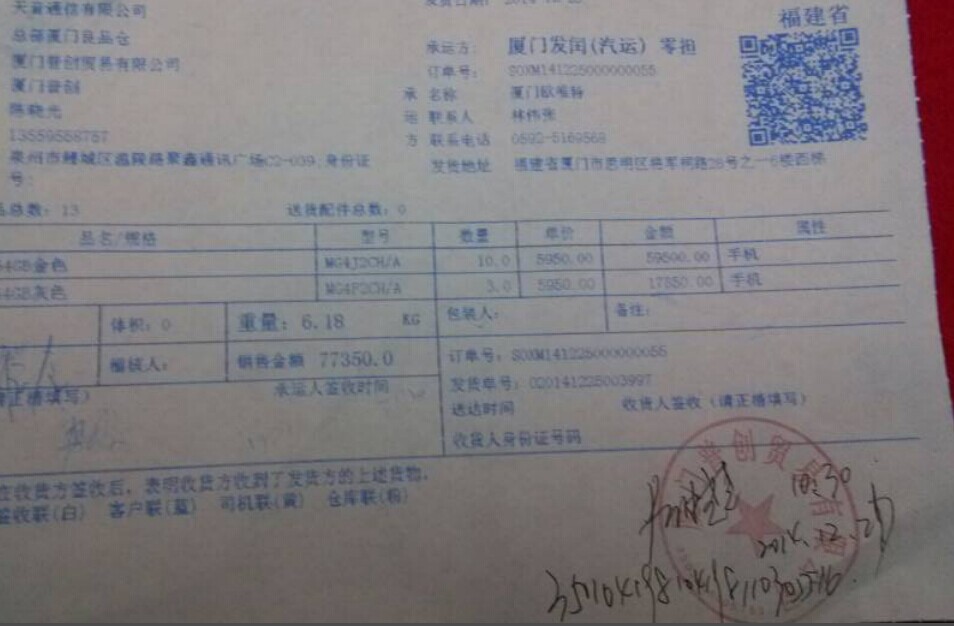 天音通信有限公司
总部厦门良品仓
厦门普创贸易有限公司
厦门普创
陈晓光
13559588787
泉州市鲤城区温陵路聚鑫通讯广场C2-039,身份证
号:
福建省
承运方: 厦门发闰(汽运) 零担
订单号: SOXM141225000000055
承 名称 厦门欧唯特
运 联系人 林伟张
方 联系电话 0592-5169569
发货地址 福建省厦门市思明区将军祠路28号之一6楼西梯
品总数: 13 送货配件总数: 0
品名/规格 型号 数量 单价 金额 属性
64GB金色 MG4J2CH/A 10.0 5950.00 59500.00 手机
64GB灰色 MG4F2CH/A 3.0 5950.00 17850.00 手机
体积: 0 重量: 6.18 KG 包装人: 备注:
稽核人: 销售金额 77350.0 订单号: SOXM141225000000055
请正楷填写) 承运人签收时间 发货单号: 020141225003997
送达时间 收货人签收 (请正楷填写)
收货人身份证号码
在收货方签收后, 表明收货方收到了发货方的上述货物.
签收联(白) 客户联(蓝) 司机联(黄) 仓库联(粉)
10:30
2014.12.27